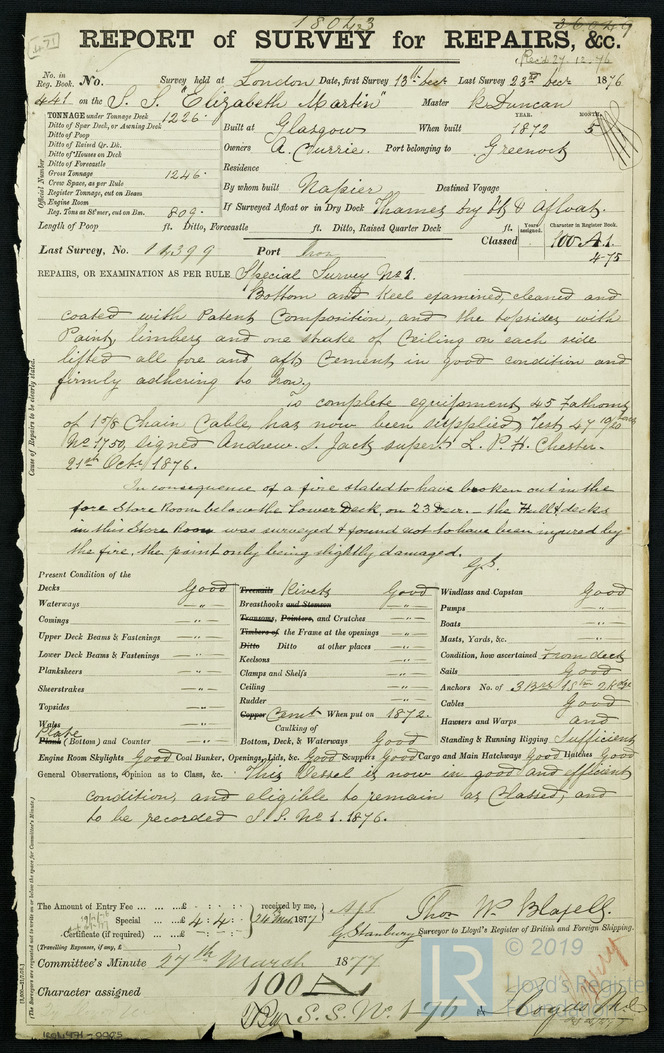 18043
36049
471
REPORT of SURVEY for REPAIRS, &c.
Rec'd 27.12.76
No. in Reg. Book. No. Survey held at London Date, first Survey 13th Decr Last Survey 23rd Decr 1876
441 on the S. S. "Elizabeth Martin" Master R. Duncan
TONNAGE under Tonnage Deck 1226.
Ditto of Spar Deck, or Awning Deck
Ditto of Poop
Ditto of Raised Qr. Dk.
Ditto of Houses on Deck
Ditto of Forecastle
Gross Tonnage 1246.
Crew Space, as per Rule
Register Tonnage, cut on Beam
Engine Room
Reg. Tons as St'mer, cut on Bm. 809.
Official Number
YEAR. MONTH.
Built at Glasgow When built 1872 5
Owners A. Currie. Port belonging to Greenock
Residence
By whom built Napier Destined Voyage
If Surveyed Afloat or in Dry Dock Thames Dry Dk & Afloat.
Length of Poop ft. Ditto, Forecastle ft. Ditto, Raised Quarter Deck ft.
Years assigned. Character in Register Book.
Last Survey, No. 14399 Port Classed 100 A.1.
4-75
REPAIRS, OR EXAMINATION AS PER RULE Special Survey No 1.
Bottom and Keel examined, cleaned and
coated with Patent Composition, and the topsides with
Paint, limbers and one strake of Ceiling on each side
lifted all fore and aft, Cement in good condition and
firmly adhering to Iron,
To complete equipment, 45 Fathoms
of 1 5/8 Chain Cable, has now been supplied, Test 47 10/20 Tons
No 1750, signed Andrew. S. Jack supert L. P. H. Chester.
21st Octr 1876.
In consequence of a fire stated to have broken out in the
fore Store Room below the Lower Deck, on 23 Decr. - the Hull & decks
in this Store Room was surveyed & found not to have been injured by
the fire, the paint only being slightly damaged.
G.S.
Cause of Repairs to be clearly stated.
Present Condition of the
Decks Good
Waterways -"-
Comings -"-
Upper Deck Beams & Fastenings -"-
Lower Deck Beams & Fastenings -"-
Planksheers -"-
Sheerstrakes -"-
Topsides -"-
Wales -"-
Plate
Plank (Bottom) and Counter -"-
Treenails Rivets Good
Breasthooks and Stemson -"-
Transoms, Pointers, and Crutches -"-
Timbers of the Frame at the openings -"-
Ditto Ditto at other places -"-
Keelsons -"-
Clamps and Shelfs -"-
Ceiling -"-
Rudder -"-
Copper Cemt When put on 1872.
Caulking of
Bottom, Deck, & Waterways Good
Windlass and Capstan Good
Pumps -"-
Boats -"-
Masts, Yards, &c. -"-
Condition, how ascertained From deck
Sails Good
Anchors No. of 3 Brs 1 Stm 2 Kedge
Cables Good
Hawsers and Warps and
Standing & Running Rigging Sufficient
Engine Room Skylights Good Coal Bunker, Openings, Lids, &c. Good Scuppers Good Cargo and Main Hatchways Good Hatches Good
General Observations, Opinion as to Class, &c. This Vessel is now in good and efficient
condition, and eligible to remain as Classed, and
to be recorded S.S. No 1. 1876.
(The Surveyors are requested not to write on or below the space for Committee's Minute.)
The Amount of Entry Fee ... £ : : received by me,
Special ... £ 4 : 4 : 24 Mar. 1877
Certificate (if required) ... £ : :
(Travelling Expenses, if any, £ )
Thos W. Blapell.
G. Stanbury Surveyor to Lloyd's Register of British and Foreign Shipping.
Committee's Minute 27th March 1877
Character assigned 100 A
S. S. No 1-76
© 2019
LR
Lloyd's Register
Foundation